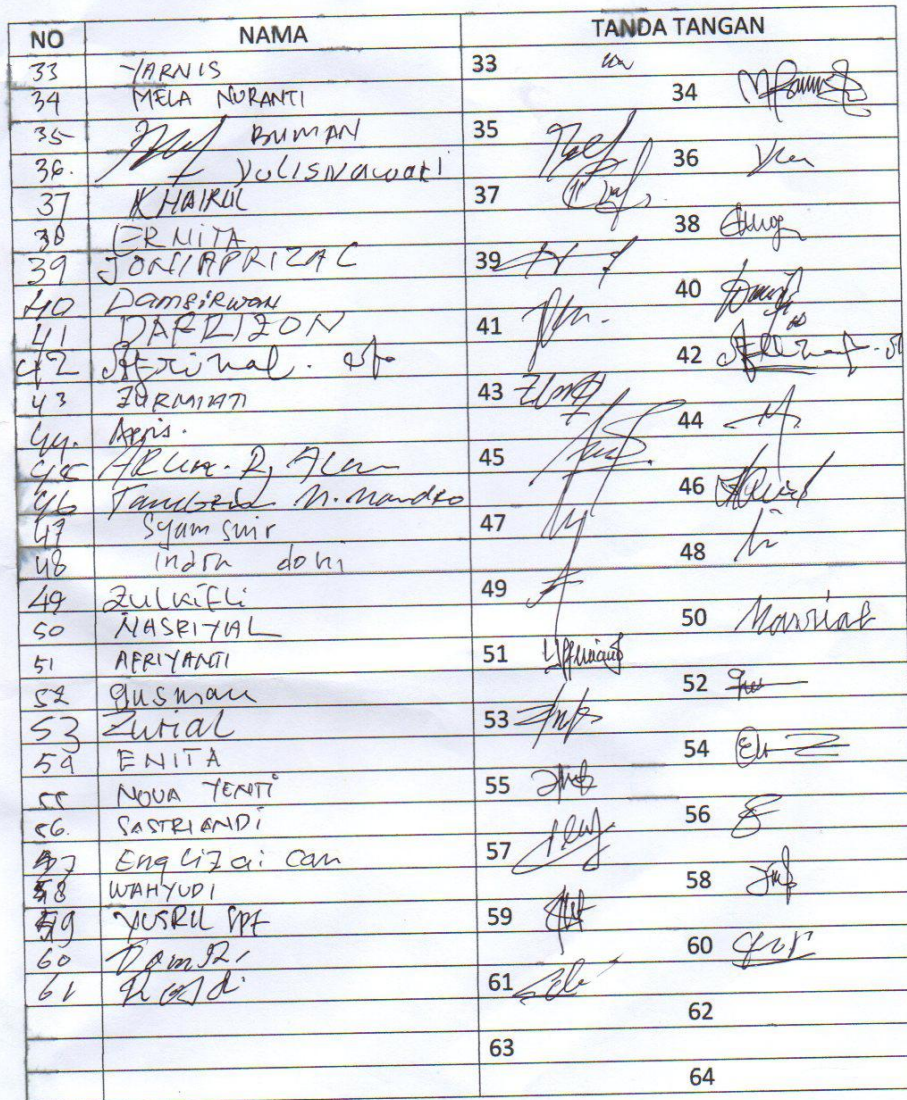 NO NAMA TANDA TANGAN
33 YARNIS 33
34 MELA NURANTI 34
35 BUMAN 35
36. YULISNawati 36
37 KHAIRUL 37
38 ERNITA 38
39 JONI APRIZAL 39
40 Damsirwan 40
41 DAFRIZON 41
42 Afrinal. 42
43 ZURMIATI 43
44. Apris. 44
45 45
46 M. Nandro 46
47 Syamsuir 47
48 indra doni 48
49 Zulkifli 49
50 NASRIYAL 50
51 AFRIYANTI 51
52 gusman 52
53 Zurial 53
54 ENITA 54
55 NOVA YENTI 55
56. SASTRIANDI 56
57 Englizai can 57
58 WAHYUDI 58
59 YUSRIL 59
60 60
61 61
62
63
64